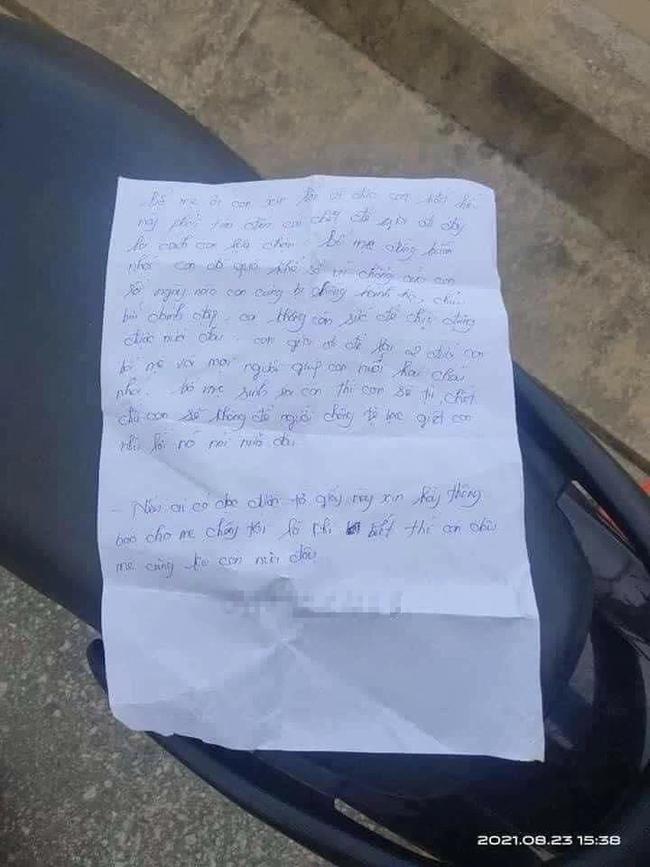 Bố mẹ ơi con xin lỗi vì đứa con bất hiếu
này phải tìm đến cái chết để nghĩ số đây
là cách con lựa chọn. Bố mẹ đừng buồn
nhé! con đã quá khổ sở vì chồng của con
rồi ngày nào con cũng bị chồng hành hạ, chửi
bới đánh đập. co không còn sức để chịu đựng
được nữa đâu. con gửi để lại 2 đứa con
bố mẹ và mọi người giúp con nuôi hai cháu
nhé. bố mẹ sinh ra con thì con sẽ tự chết
chứ con sẽ không để người chồng tệ bạc giết con
như lời nó nói nữa đâu
- Nếu ai có đọc được tờ giấy này xin hãy thông
báo cho mẹ chồng tôi là khi biết thì con dâu
mẹ cũng ko còn nữa đâu
2021.08.23 15:38